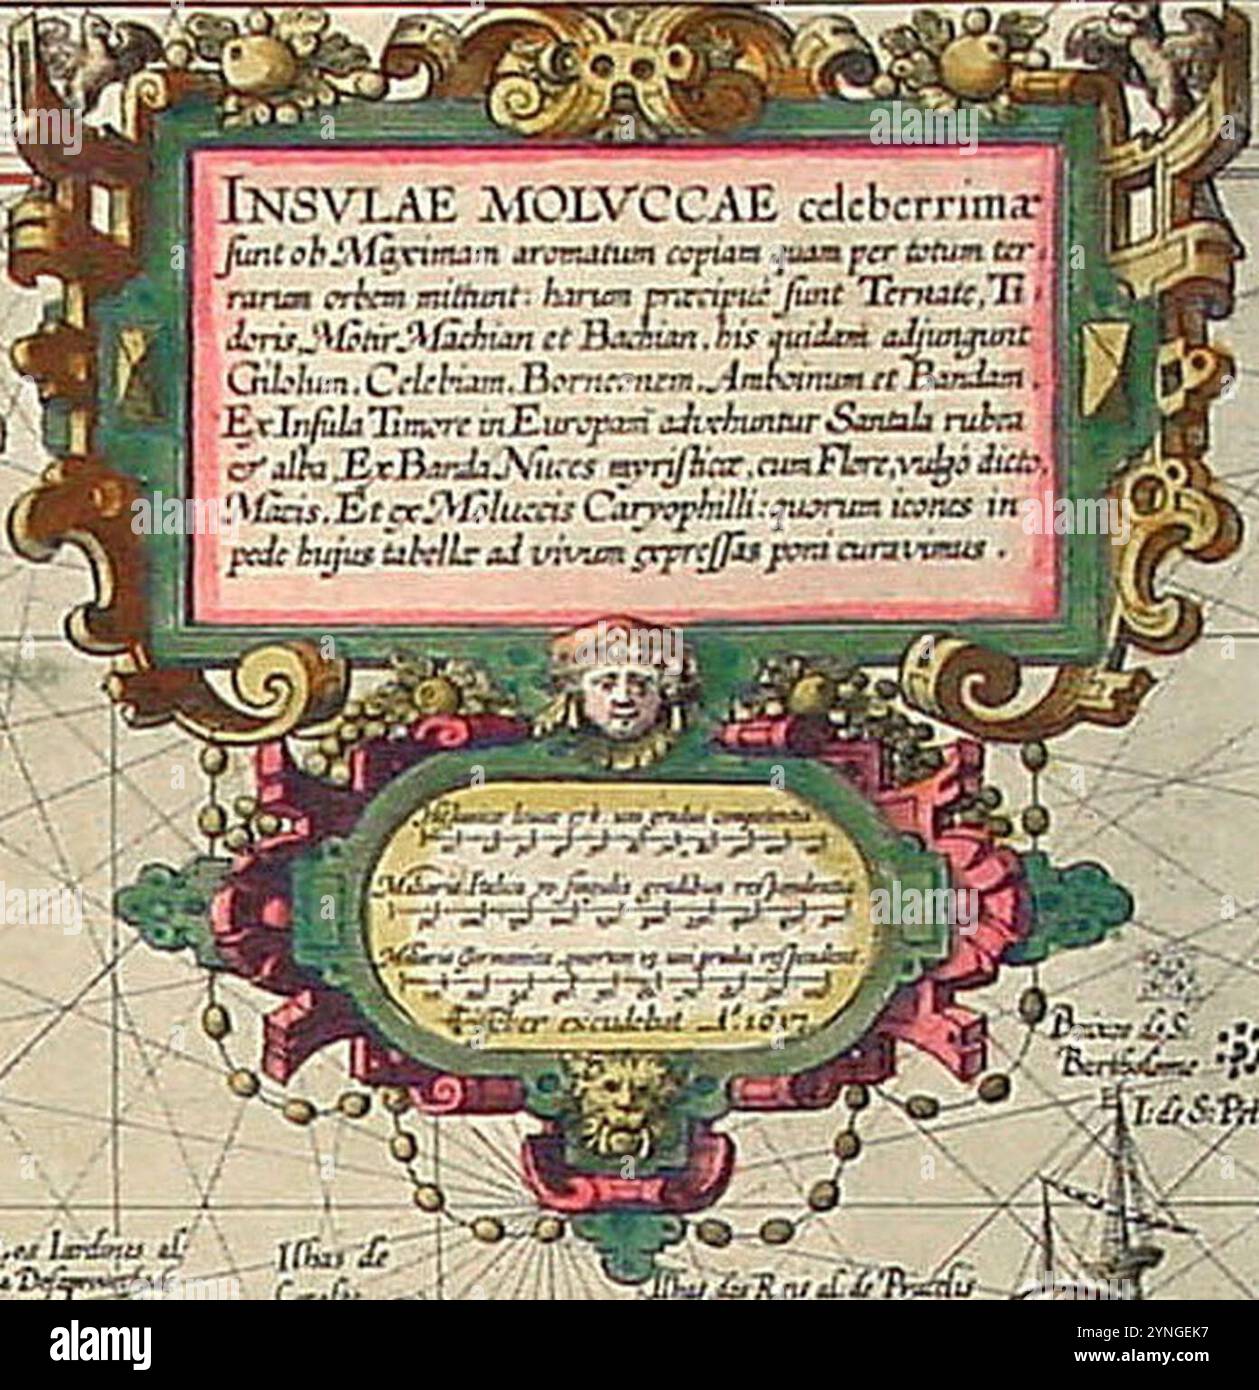 INSVLAE MOLVCCAE celeberrimæ
sunt ob Maximam aromatum copiam quam per totum ter
rarum orbem mittunt: harum præcipuæ sunt Ternate, Ti
doris, Motir Machian et Bachian, his quidam adjungunt
Gilolum, Celebiam, Borneonem, Amboinum et Bandam.
Ex Insula Timore in Europam advehuntur Santala rubea
& alba, Ex Banda Nuces myristicæ, cum Flore, vulgo dicto,
Macis, Et ex Moluccis Caryophilli: quorum icones in
pede hujus tabellæ ad vivum expressas poni curavimus.
uni gradui
Miliaria Italica 70 singulis gradibus respondentia
Miliaria Germanica, quorum 15 uni gradui respondent
CIVisscher excudebat A° 1617
Baixos de S.
Bertholome
I: de S: P
Los Iardines al
Ilhas de
Ilhas dos Reis al: de
alamy
Image ID: 2YNGEK7
www.alamy.com